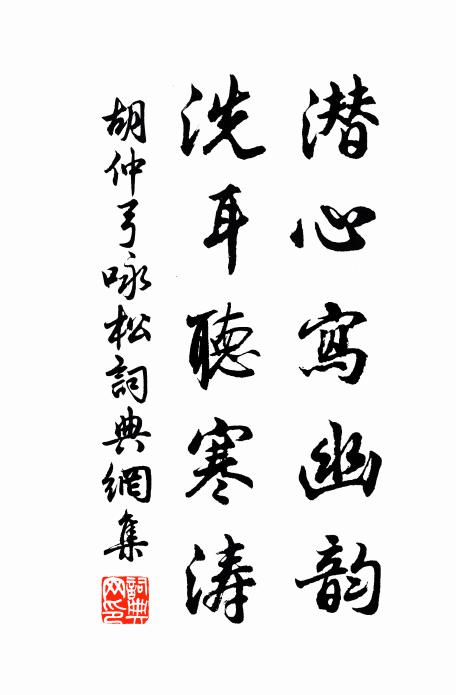 潜心寫幽韵
洗耳聽寒涛
胡仲弓咏松詞典網集
詞典網印